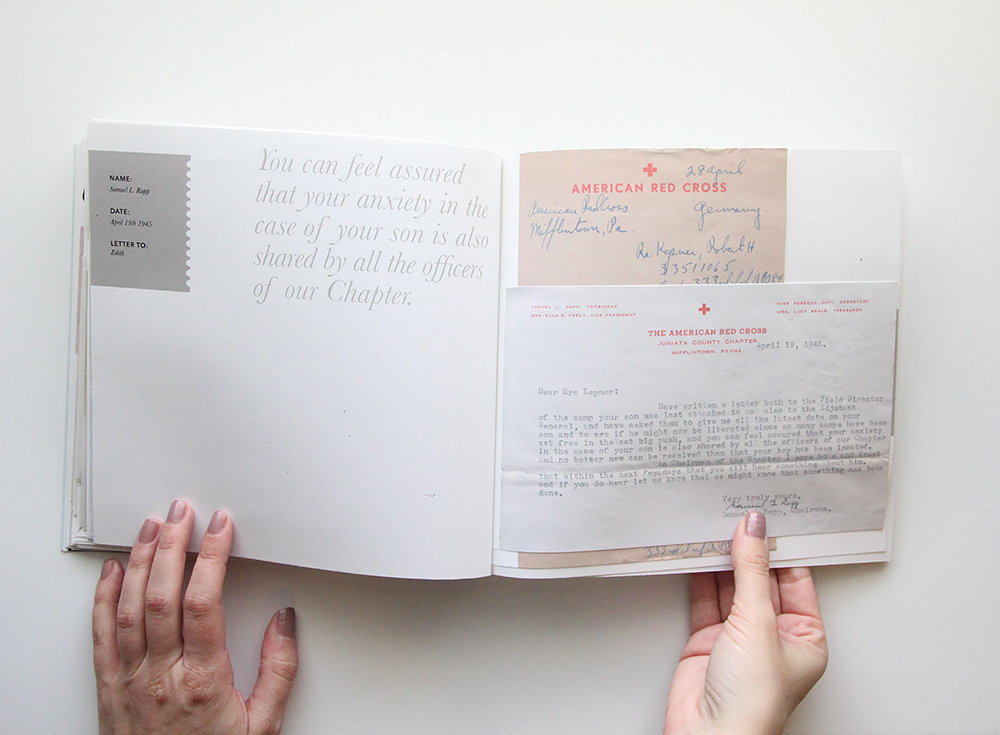 NAME:
Samuel L. Rapp
DATE:
April 19th 1945
LETTER TO:
Edith
You can feel assured
that your anxiety in the
case of your son is also
shared by all the officers
of our Chapter.
~
28 April
AMERICAN RED CROSS
American Red Cross
Germany
Mifflintown, Pa.
Re. Kepner, Robert H.
33511065
333
SAMUEL L. RAPP, PRESIDENT
MRS. ELLA B. NEELY, VICE PRESIDENT
MISS REBECCA DOTY, SECRETARY
MRS. LUCY BEALE, TREASURER
THE AMERICAN RED CROSS
JUNIATA COUNTY CHAPTER
MIFFLINTOWN, PENNA.
April 19, 1945.
Dear Mrs Kepner:
Have written a letter both to the Field Director
of the camp your son was last attached to and also to the Adjutant
General, and have asked them to give me all the latest data on your
son and to see if he might now be liberated since so many camps have been
set free in the last big push, and you can feel assured that your anxiety
in the case of your son is also shared by all the officers of our Chapter
and no better new can be received than that your boy has been located.
As Chairman of the Chapter I sure hope and trust
that within the next few days that you will hear something about him.
and if you do hear let us know that we might know that something has been
done.
Very truly yours,
Samuel L Rapp
Samuel L. Rapp, Chairman.
333rd